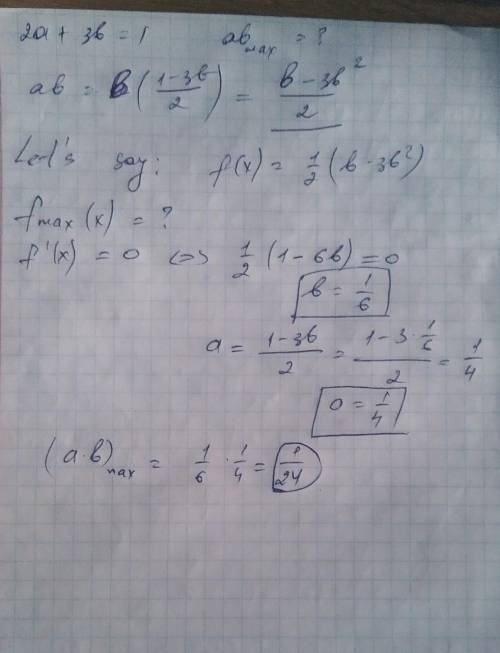 2a + 3b = 1 ab max = ?
ab = b ( (1-3b)/2 ) = (b - 3b²)/2
Let's say: f(x) = 1/2 (b - 3b²)
fmax(x) = ?
f'(x) = 0 <=> 1/2 (1 - 6b) = 0
b = 1/6
a = (1-3b)/2 = (1-3·1/6)/2 = 1/4
a = 1/4
(a·b)max = 1/6 · 1/4 = 1/24